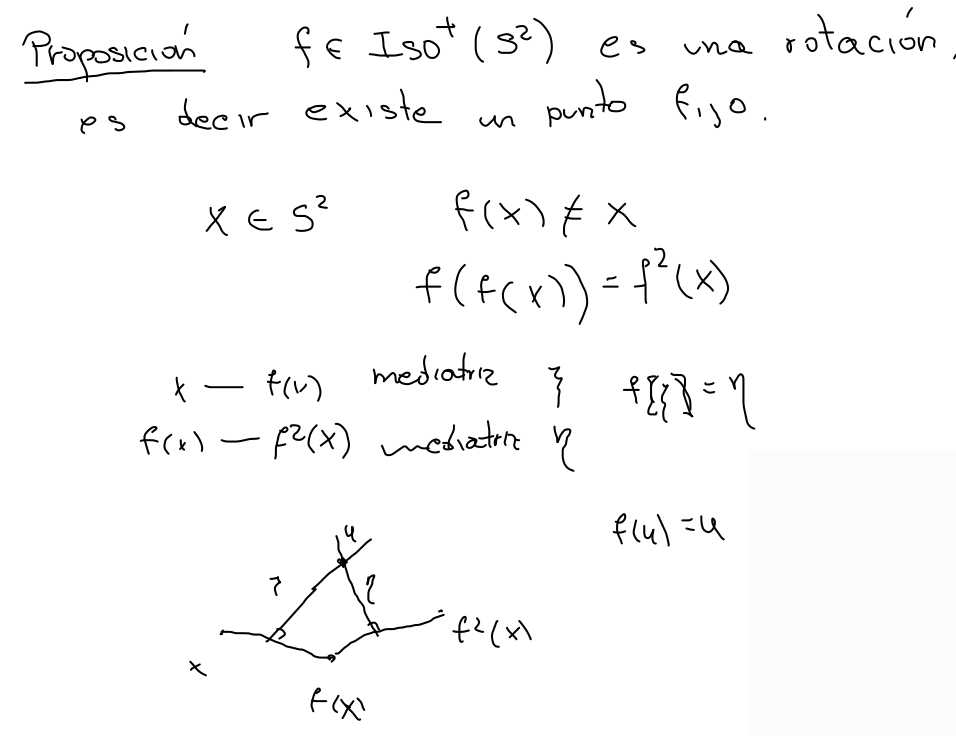 Proposición f ∈ Iso⁺(S²) es una rotación,
es decir existe un punto fijo.
x ∈ S² f(x) ≠ x
f(f(x)) = f²(x)
x — f(x) mediatriz ξ f[ξ] = η
f(x) — f²(x) mediatriz η
f(u) = u
u
ξ η
f²(x)
x
f(x)